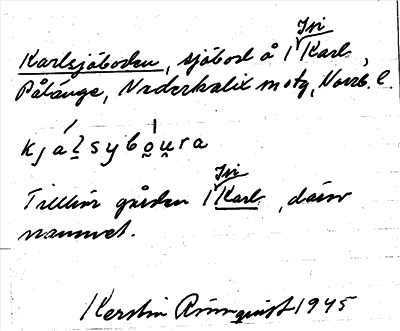 Karlsjöboden, sjöbod å 1 Isi Karl,
Pålänge, Nederkalix motg, Norrb. l.
kjálsybo̱u̱ra
Tillhör gården 1 Isi Karl, därav
namnet.
Kerstin Rönnquist 1945